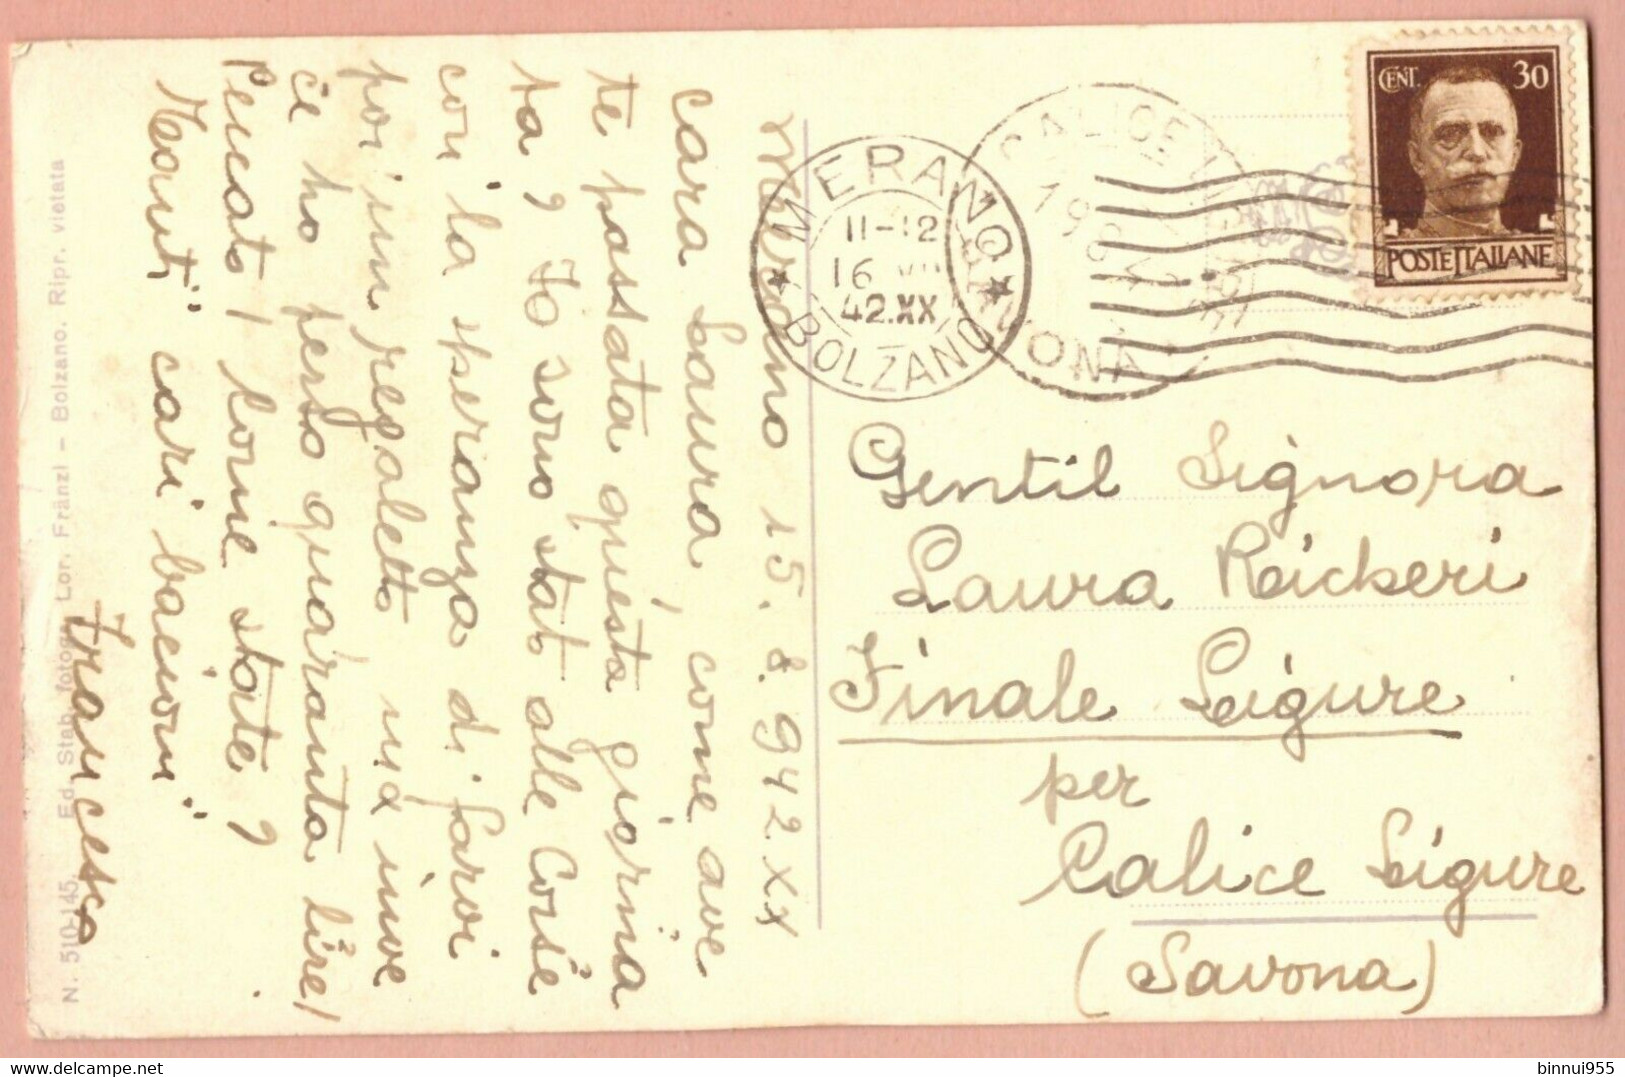 Merano 15.8.942.XX
Cara Laura, come ave
te passata questa giorna
ta? Io sono stato alle Corse
con la speranza di farvi
poi un regaletto ma inve
ce ho perso quaranta lire!
Peccato! Come state?
Tanti "cari bacioni"
Francesco
N. 510-145. Ed. Stab. fotogr. Lor. Fränzl - Bolzano. Ripr. vietata
CENT. 30
POSTE ITALIANE
MERANO
11-12
16 VIII
42.XX
BOLZANO
CALICE LIGURE
19 8 42
SAVONA
Gentil Signora
Laura Raickeri
Finale Ligure
per
Calice Ligure
(Savona)
binnui955
delcampe.net